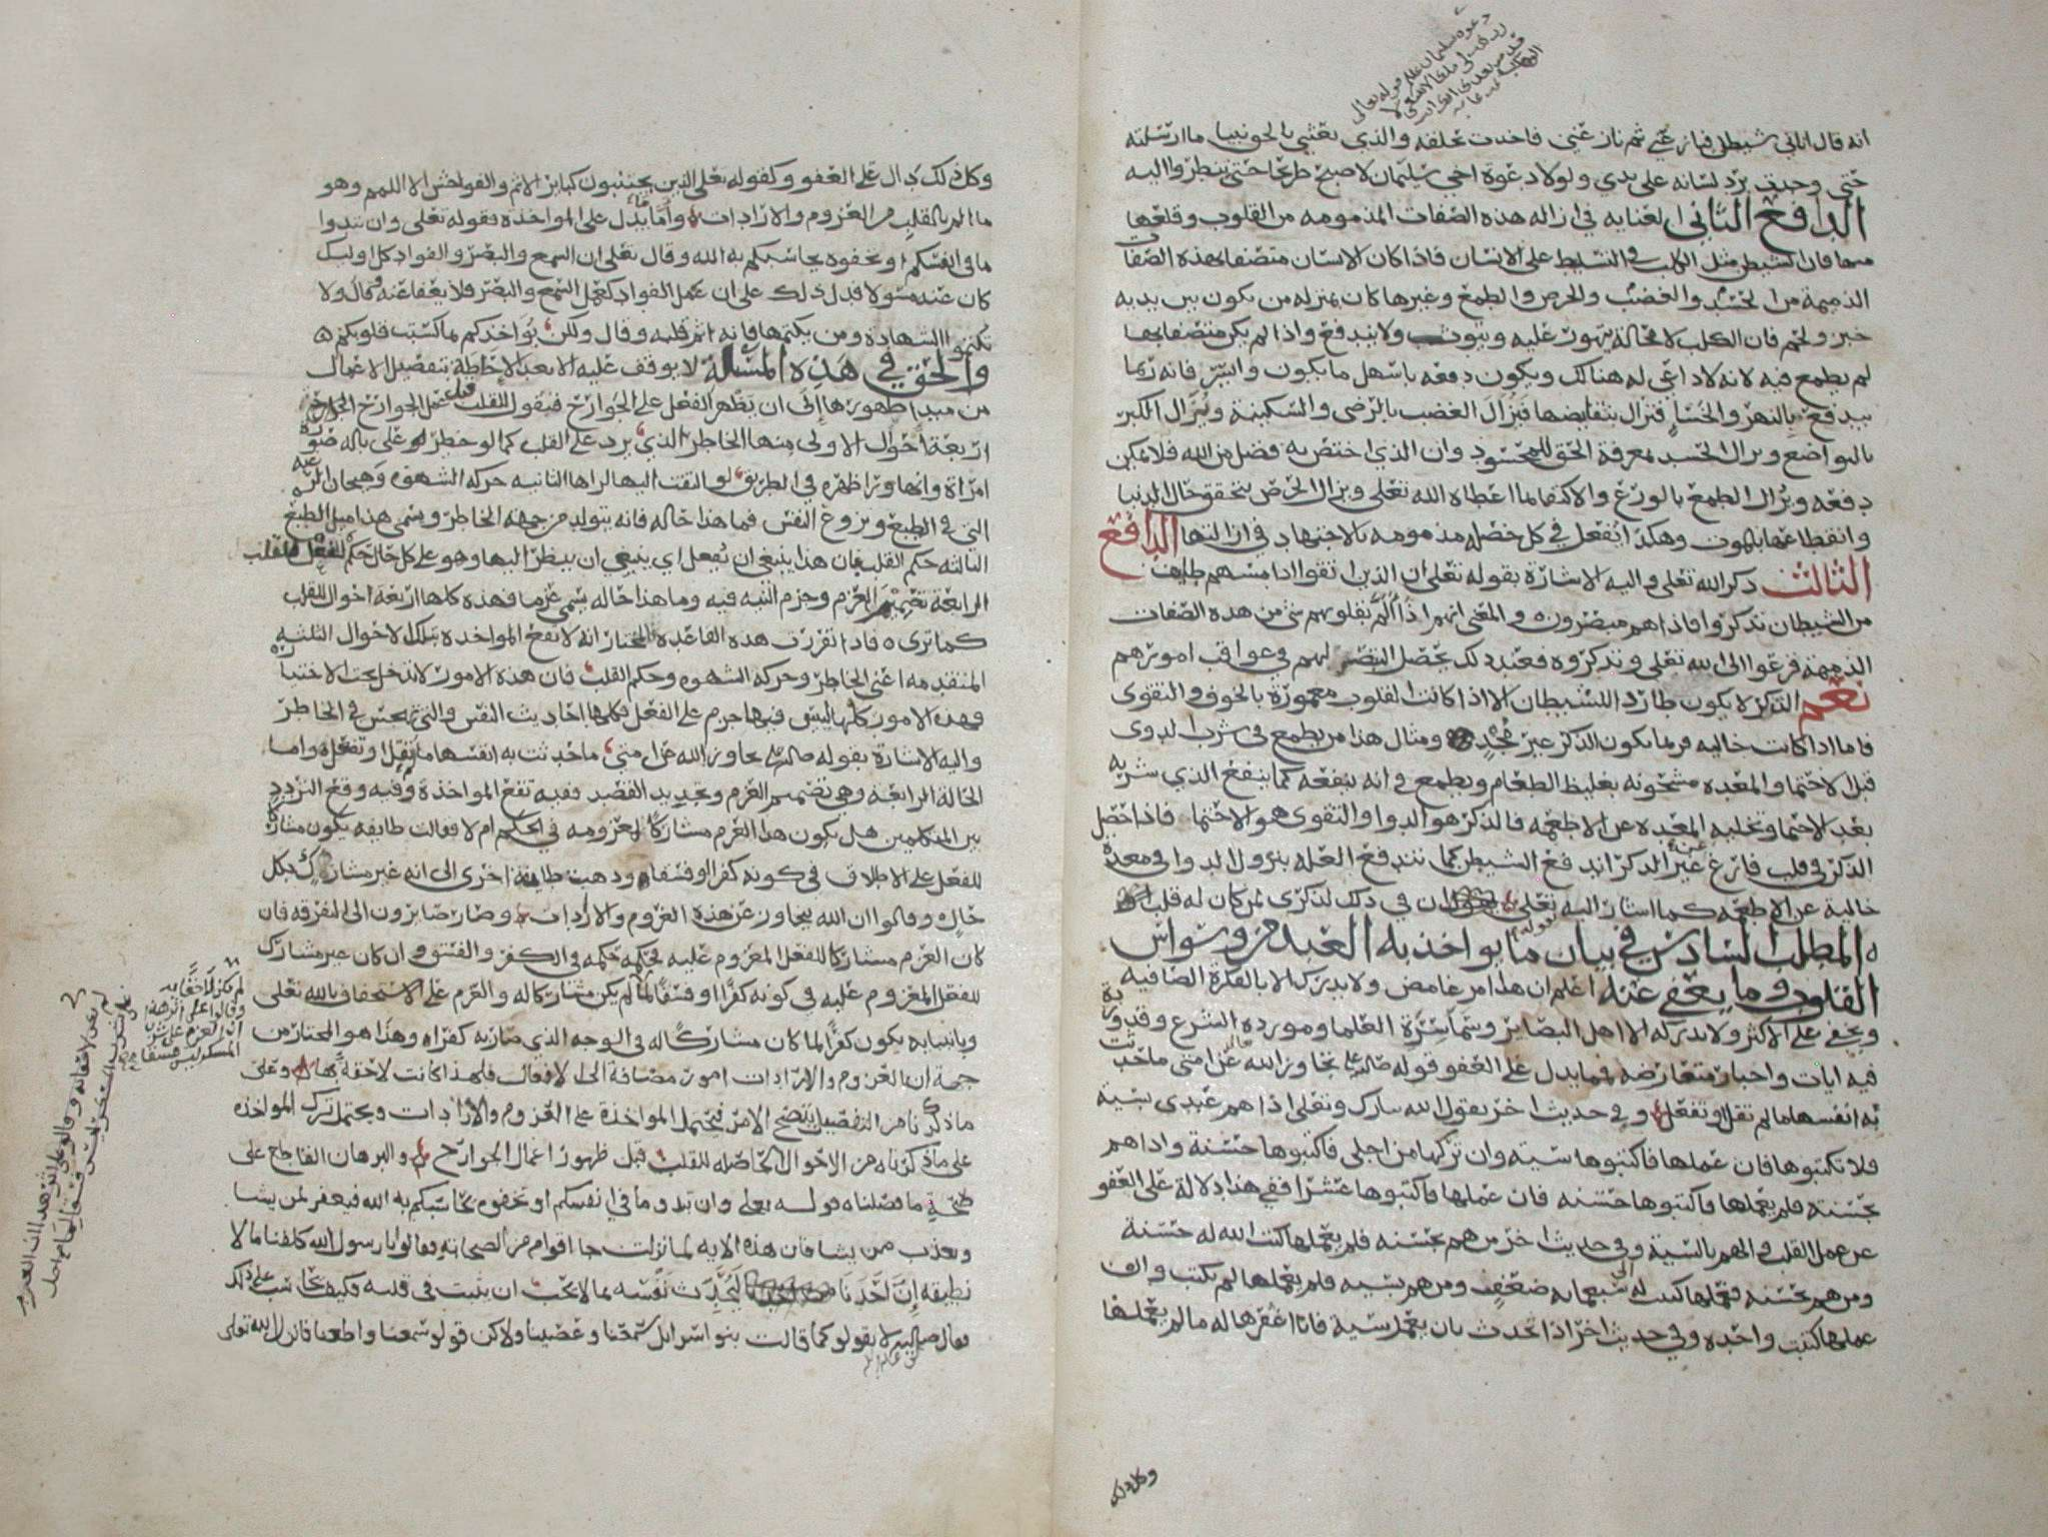 انه قال اتاني شيطان فنازعني ثم نازعني فاخذت بحلقه والذي بعثني بالحق نبيا ما ارسلته
حتى وجدت برد لسانه على يدي ولولا دعوة اخي سليمان لاصبح طريحا حتى تنظروا اليه
الدافع الثاني العنايه في ازاله هذه الصفات المذمومه من القلوب وقلعها
منها فان الشيطن مثل الكلب في التسليط على الانسان فاذا كان الانسان متصفا بهذه الصفات
الذميمة من الحسد والغضب والحرص والطمع وغيرها كان بمنزله من يكون بين يديه
خبز ولحم فان الكلب لا محالة يتهور عليه ويتوثب ولا يندفع واذا لم يكن متصفا بها
لم يطمع فيه لانه لا داعي له هنالك ويكون دفعه باسهل ما يكون وايسر فانه ربما
يندفع بالنهر والخسا فتزال بنقايضها فيزال الغضب بالرضى والسكينة ويزال الكبر
بالتواضع ويزال الحسد بمعرفة الحق للمحسود وان الذي اختص به فضل من الله فلا يمكن
دفعه ويزال الطمع بالورع والاكتفا بما اعطاه الله تعلى ويزال الحرص بتحقق حال الدنيا
وانقطاعها بالموت وهكذا يفعل في كل خصله مذمومه بالاجتهاد في ازالتها الدافع
الثالث ذكر الله تعلى واليه الاشارة بقوله تعلى ان الذين اتقوا اذا مسهم طايف
من الشيطان تذكروا فاذا هم مبصرون والمعنى انهم اذا الم بقلوبهم شي من هذه الصفات
الذميمة فزعوا الى الله تعلى وتذكروه فعند ذلك يحصل التبصر لهم في عواقب امورهم
نعم الذكر لا يكون طاردا للشيطان الا اذا كانت القلوب معمورة بالخوف والتقوى
فاما اذا كانت خاليه فربما يكون الذكر غير مجد ومثال هذا من يطمع في شرب الدوى
قبل الاحتما والمعده مشحونه بغليظ الطعام ويطمع في انه ينفعه كما ينفع الذي شربه
بعد الاحتما وتخليه المعده عن الاطعمه فالذكر هو الدوا والتقوى هو الاحتما فاذا حصل
الذكر في قلب فارغ عن غير الذكر اندفع الشيطن كما تندفع العله بنزول الدوا في معدة
خالية عن الاطعمه كما اشار اليه تعلى بقوله ان في ذلك لذكرى لمن كان له قلب
المطلب السادس في بيان ما يواخذ به العبد من وسواس
القلوب وما يعفى عنه اعلم ان هذا امر غامض ولا يدرك الا بالفكرة الصافيه
ويخفى على الاكثر ولا يدركه الا اهل البصاير وسماسرة العلما ومورده الشرع وقد وردت
فيه ايات واخبار متعارضه فمما يدل على العفو قوله صلى الله عليه تجاوز الله عن امتى ما حدثت
به انفسها ما لم تقل او تفعل وفي حديث اخر يقول الله تبارك وتعلى اذا هم عبدي بسية
فلا تكتبوها فان عملها فاكتبوها سيئة وان تركها من اجلي فاكتبوها حسنة واذا هم
بحسنة فلم يعملها فاكتبوها حسنه فان عملها فاكتبوها عشرا ففي هذا دلالة على العفو
عن عمل القلب في الهم بالسية وفي حديث اخر من هم بحسنه فلم يعملها كتب الله له حسنة
ومن هم بحسنه فعملها كتبت له الى سبعمايه ضعف ومن هم بسيه فلم يعملها لم يكتب وان
عملها كتبت واحده وفي حديث اخر اذا تحدث بان يعمل سية فانا اغفرها له ما لم يعملها
وكل ذلك
وكل ذلك دال على العفو وكقوله تعلى الذين يجتنبون كبائر الاثم والفواحش الا اللمم وهو
ما الم بالقلب من العزوم والارادات واما ما يدل على المواخذه فقوله تعلى وان تبدوا
ما في انفسكم او تخفوه يحاسبكم به الله وقال تعلى ان السمع والبصر والفواد كل اوليك
كان عنه مسولا فدل ذلك على ان عمل الفواد كعمل السمع والبصر فلا يعفا عنه وقال ولا
تكتموا الشهادة ومن يكتمها فانه اثم قلبه وقال ولكن يواخذكم بما كسبت قلوبكم
والحق في هذه المسالة لا يوقف عليه الا بعد الاحاطة بتفصيل الاعمال
من مبدا ظهورها الى ان يظهر الفعل على الجوارح فنقول للقلب قبل عمل الجوارح
اربعة احوال الاولى منها الخاطر الذي يرد على القلب كما لو خطر على باله صورة
امراة وانها ورا ظهره في الطريق لو التفت اليها لراها الثانيه حركه الشهوه وهيجان الرغبه
التي في الطبع ونزوع النفس فما هذا حاله فانه يتولد من جهة الخاطر ويسمى هذا ميل الطبع
الثالثه حكم القلب بان هذا ينبغي ان يفعل اي ينبغي ان ينظر اليها وهو على كل حال حكم للقلب
الرابعة تصميم العزم وجزم النيه فيه وما هذا حاله يسمى عزما فهذه كلها اربعة احوال للقلب
كما ترى فاذا تقررت هذه القاعده فالمختار انه لا تقع المواخذه بتلك الاحوال الثلثه
المتقدمه اعني الخاطر وحركه الشهوه وحكم القلب فان هذه الامور لا تدخل تحت الاختيار
فهذه الامور كلها ليس فيها جزم على الفعل فكلها احاديث النفس والتي تهجس في الخاطر
واليه الاشارة بقوله صلى الله عليه تجاوز الله عن امتي ما حدثت به انفسها ما لم تقل او تفعل واما
الحالة الرابعه وهي تصميم العزم وتجديد القصد ففيه تقع المواخذة وفيه وقع التردد
بين المتكلمين هل يكون هذا العزم مشاركا لمعزومه في الحكم ام لا فقالت طايفه يكون مشاركا
للفعل على الاطلاق في كونه كفرا او فسقا وذهبت طايفة اخرى الى انه غير مشارك بكل
حال وقالوا ان الله تجاوز عن هذه العزوم والارادات وصار صايرون الى التفرقه فان
كان العزم مشاركا للفعل المعزوم عليه فحكمه حكمه في الكفر والفسق وان كان غير مشارك
للفعل المعزوم عليه في كونه كفرا او فسقا لما لم يكن مشاركا له والعزم على الاستخفاف بالله تعلى
وبانبيايه يكون كفرا لما كان مشاركا له في الوجه الذي صار به كفرا وهذا هو المختار من
جهة ان العزوم والارادات امور مضافة الى الافعال فلهذا كانت لاحقة بها وعلى
ما ذكرنا من التفصيل يتضح الامر فتحمل المواخذة على العزوم والارادات ويحتمل ترك المواخذه
على ما ذكرناه من الاحوال الحاصله للقلب قبل ظهور اعمال الجوارح والبرهان القاطع على
صحة ما فصلناه قوله تعلى وان تبدوا ما في انفسكم او تخفوه يحاسبكم به الله فيغفر لمن يشا
ويعذب من يشا فان هذه الايه لما نزلت جا اقوام من الصحابة وقالوا يا رسول الله كلفنا ما لا
نطيقه ان احدنا ليحدث نفسه بما لا يحب ان يثبت في قلبه فكيف نحاسب على ذلك
فقال صلى الله عليه لا تقولوا كما قالت بنو اسرايل سمعنا وعصينا ولاكن قولوا سمعنا واطعنا فانزل الله تعلى